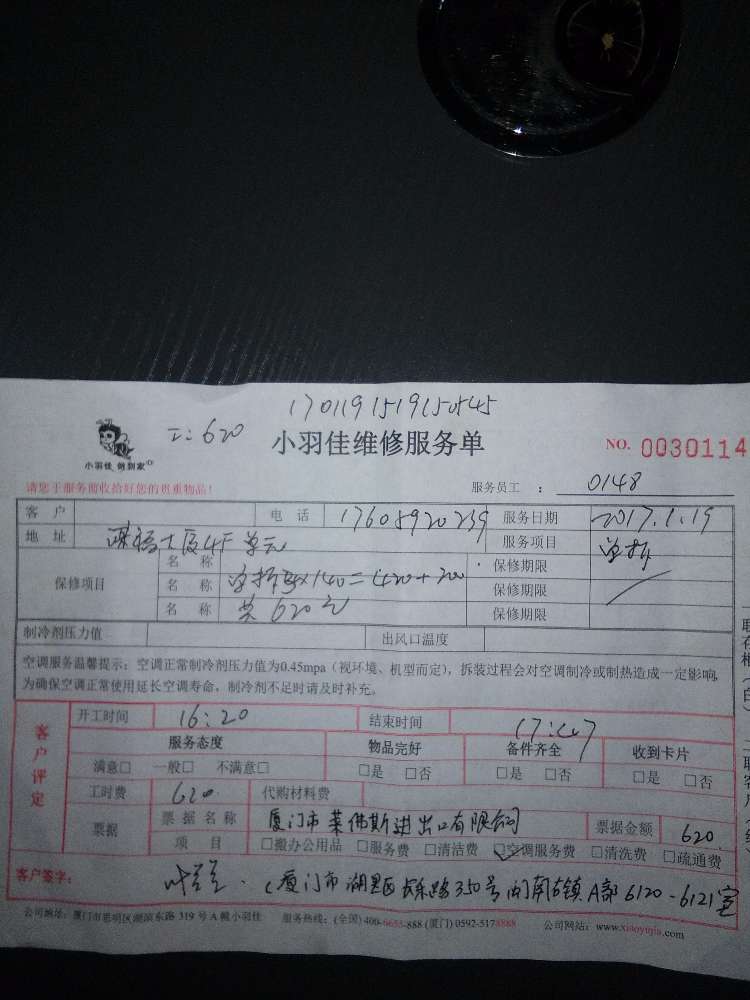 1701191519150545
工：620
小羽佳 做到家
小羽佳维修服务单
NO. 0030114
请您于服务前收拾好您的贵重物品！
服务员工 ： 0148
客 户 电 话 17608920239 服务日期 2017.1.19
地 址 大厦4F 单元 服务项目 单拆
保修项目
名 称 保修期限
名 称 单拆3x140=420+200 保修期限
名 称 共620元 保修期限
制冷剂压力值 出风口温度
空调服务温馨提示：空调正常制冷剂压力值为0.45mpa（视环境、机型而定），拆装过程会对空调制冷或制热造成一定影响，
为确保空调正常使用延长空调寿命，制冷剂不足时请及时补充。
客户评定
开工时间 16:20 结束时间
服务态度 物品完好 备件齐全 收到卡片
满意□ 一般□ 不满意□ □是 □否 □是 □否 □是 □否
工时费 620. 代购材料费
票据 票据名称 厦门市莱佛斯进出口有限公司 票据金额 620.
项 目 □搬办公用品 □服务费 □清洁费 □空调服务费 □清洗费 □疏通费
客户签字： （厦门市湖里区长乐路350号闽南古镇A部6120-6121室
公司地址：厦门市思明区湖滨东路319号A幢小羽佳 服务热线：(全国) 400-6655-888 (厦门) 0592-5178888 公司网站：www.xiaoyujia.com